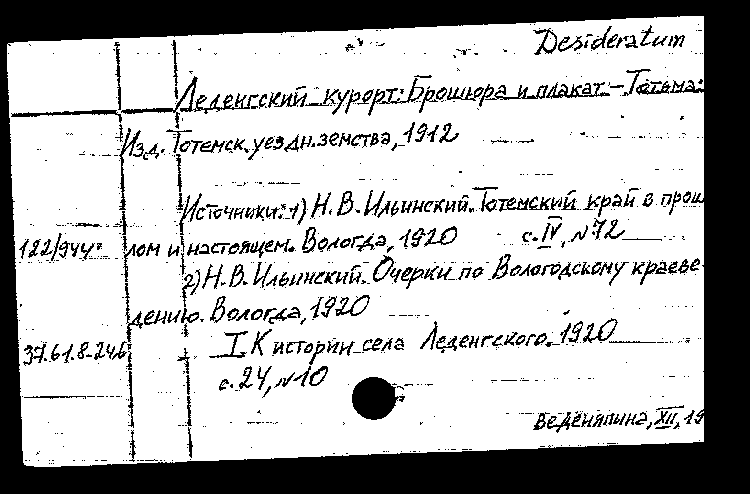 Desideratum
Леденгский курорт: Брошюра и плакат. – Тотьма:
Изд. Тотемск. уездн. земства, 1912
Источники: 1) Н. В. Ильинский. Тотемский край в прош
122/944 лом и настоящем. Вологда, 1920 с. IV, №72
2) Н. В. Ильинский. Очерки по Вологодскому краеве-
дению. Вологда, 1920
37.61.8-246 I. К истории села Леденгского. 1920
с. 24, №10
Веденяпина, XII, 19